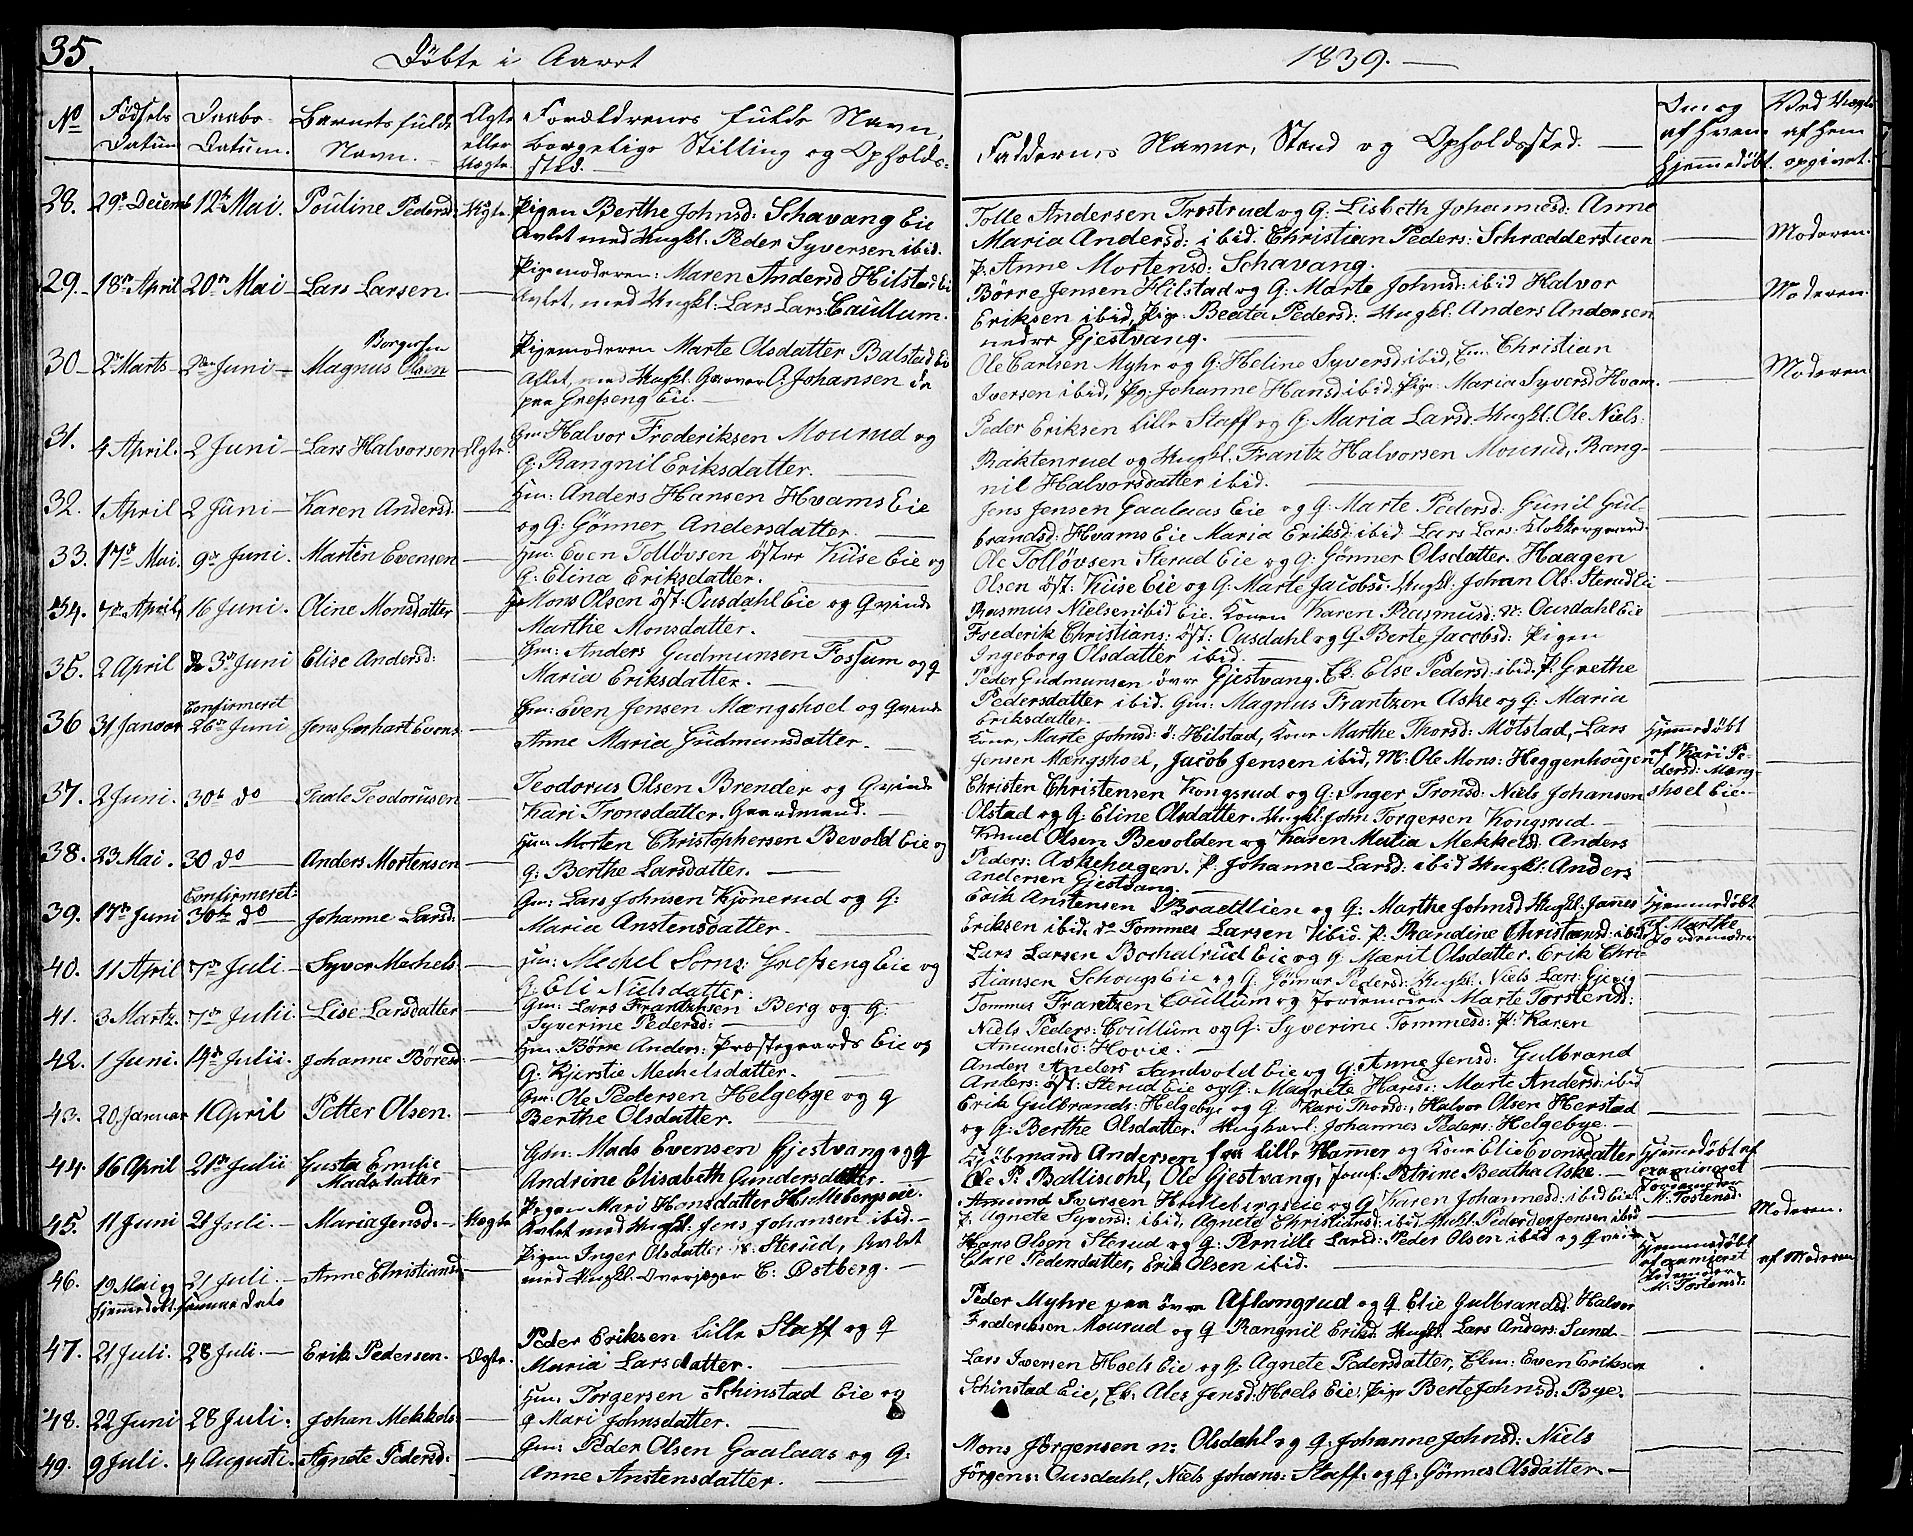 35.
Döbte i Aaret
1839. —
No
Födsels Datum
Daabs Datum.
Barnets fulde Navn.
Ægte eller Uægte
Forældrenes fulde Navn, borgerlige Stilling og Opholdssted.
Faddernes Navne, Stand og Opholdssted. —
Om og af hvem hjemmedöbt.
Ved Uægte af hvem opgivet.
28. 29de Decemb 12te Mai. Pouline Pedersd: Uægte Pigen Berthe Johnsd: Schavang Eie
Avlet med Ungkl. Peder Syversen ibid.
Tolle Andersen Trostrud og G: Lisbeth Johannesd: Anne
Maria Andersd: ibid. Christian Peders: Schrædderstuen
P. Anne Mortensd: Schavang.
Moderen.
29. 18de April 20de Mai Lars Larsen. — Pigemoderen: Maren Andersd Hilstad Ei
Avlet, med Ungkl: Lars Lars: Caullum.
Börre Jensen Hilstad og G: Marte Johnsd: ibid Halvor
Eriksen ibid, Pige Beata Pedersd: Ungkl: Anders Andersen
nedre Gjestvang. —
Moderen.
30 2 Marts 2den Juni Magnus Olsen
Borgersen
Pigemoderen Marte Olsdatter Balstad Ei
Aflet, med Ungkl. O: Johansen
paa Grefseng Eie.
Ole Carlsen Myhr og G: Heline Syversd: ibid, Em. Christian
Iversen ibid, Pg: Johanne Hansd ibid: Pige Maria Syversd Hvam.
Moderen
31. 4 April. 2 Juni Lars Halvorsen Ægte. Gm Halvor Frederiksen Mourud og
G: Rangnil Eriksdatter.
Peder Eriksen Lille Staff og G: Maria Larsd. Ungkl: Ole Niels:
Raktenrud og Ungkl. Frantz Halvorsen Mourud, Rang-
nil Halvorsdatter ibid.
32. 1 April 2 Juni Karen Andersd Hm: Anders Hansen Hvams Eie
og G: Gönner Andersdatter.
Jens Jensen Gaalaas Eie og G: Marte Pedersd: Gunil Gul-
brandsd: Hvams Eie Maria Eriksd: ibid Lars Lars: Klokkergaard
33. 17de Mai. 9de Juni. Martin Evensen Hm: Even Tollövsen östre Kiise Eie og
G: Elina Eriksdatter.
Ole Tollövsen Sterud Eie og G: Gönner Olsdatter. Haagen
Olsen öst: Kiise Eie og G: Marte Jacobsd: Ungkl: Johan Ols: Sterud Ei
34. 7de April 16 Juni. Oline Monsdatter Mons Olsen öst: Ousdahl Eie og Qvinde
Marthe Monsdatter.
Rasmus Nielsen ibid Eie. Konen Karen Rasmusd: n: Ousdahl Eie
Frederik Christians: öst: Ousdahl og G Berte Jacobsd: Pigen
Ingeborg Olsdatter ibid.
35. 2 April 3de Juni Elise Andersd: Gm: Anders Gudmunsen Fossum og G
Maria Eriksdatter.
Peder Gudmunsen övre Gjestvang. Ek: Else Pedersd: ibid. P: Grethe
Pedersdatter ibid. Gm: Magnus Frantzen Aske og G: Maria
Eriksdatter.
36 31 Januar Confirmeret 26de Juni Jens Gerhart Evens. Gm: Even Jensen Mængshoel og Qvinde
Anne Maria Gudmunsdatter.
Kone, Marte Johnsd: ö: Hilstad, Kone Marthe Thorsd: Mötstad, Lars
Jensen Mængshoel, Jacob Jensen ibid, M: Ole Mons: Heggenhougen
Hjemmedöbt af Kari Pedersd: Mængshoel Eie.
37. 2 Juni. 30te do Paale Teodorusen Teodorus Olsen Brender og Qvinde
Kari Tronsdatter. Gaardmand.
Christen Christensen Kongsrud og G: Inger Tronsd: Niels Johansen
Olstad og G: Eline Olsdatter. Ungkl: John Torgersen Kongsrud.
38. 23 Mai. 30 do Anders Mortensen Hm: Morten Christophersen Bevold Eie og
G: Berthe Larsdatter.
Knud Olsen Bevolden og Karen Matia Mekkelsd: Anders
Peders: Askehagen. P. Johanne Larsd: ibid Ungkl: Anders
Andersen Gjestvang.
39. 17de Juni Confirmeret: 30te do Johanne Larsd: Gm: Lars Johnsen Kjönerud og G:
Maria Anstensdatter.
Erik Anstensen Braattlien og G: Marthe Johnsd Ungkl: Johnes
Eriksen ibid, do Tommes Larsen ibid. P: Randine Christiansd: ibid
Hjemmedöbt af Marthe Jordemoder
40. 11 April 7de Juli Syver Mechels. Hm: Mechel Sörns: Grefseng Eie og
G: Eli Nielsdatter.
Lars Larsen Bochalrud Eie og G: Marit Olsdatter. Erik Chri-
stiansen Schougs Eie og G: Gönnor Peders: Ungkl: Niels Lars: Gjevig
41. 3 Martz. 7de Julii Lise Larsdatter Gm: Lars Frantzhsen Berg og G:
Syverine Pedersd:
Tommes Frantzen Coullum og Jordemoder Marte Torstensd:
Niels Peders: Coullum og G: Syverine Tommesd: P: Karen
Amundsd: Hovie.
42. 1 Juni. 14de Julii. Johanne Böresd: Hm: Börre Anders: Præstegaards Eie og
G: Kjerstie Mechelsdatter.
Anden Anders Sandvold Eie og G: Anne Jensd: Gulbrand
Anders: öst: Sterud Eie og G: Magrete Hansd: Marte Andersd: ibid
43. 20 Januar 1 April Petter Olsen. Gm: Ole Pedersen Helgebye og G
Berthe Olsdatter.
Erik Gulbrands: Helgebye og G Kari Thorsd:, Halvor Olsen Herstad
og G: Berthe Olsdatter. Ungkarl Johannes Peders: Helgebye.
44. 16 April 21de Julii Gusta Emilie Madsdatter Gdm: Mads Evensen Gjestvang og G
Andrine Elisabeth Gundersdatter.
Kjöbmand Andersen fra lille Hammer og Kone Elie Evensdatter
Ole P. Ballisohl, Ole Gjestvang, Jomf: Petrine Beatha Aske.
Hjemmedöbt af examineret Jordemoder M. Tostensd:
45. 11 Juni 21 Juli. Maria Jensd: Uægte Pigen Mari Hansdatter Huchlebergs eie.
Avlet med Ungkl. Jens Johansen ibid.
Amund Iversen Huchlebergs eie og G Karen Johannesd: ibid Eie.
P. Agnete Syversd: ibid, Agnete Christiansd: ibid Ungkl: Peder Jensen ibid
Moderen.
46. 19 Mai og hjemmedöbt samme Dato 21 Juli. Anne Christiansd Pigen Inger Olsdatter n: Sterud, Avlet
med Ungkl. Overjæger C: Östberg.
Hans Olsen Sterud og G: Pernille Larsd: Peder Olsen ibid og Qvinde
Clare Pedersdatter, Erik Olsen ibid.
Hjemmedöbt af examineret Jordemoder M. Tostensd:
af Moderen
47. 21 Juli. 28 Juli. Erik Pedersen. Ægte. Peder Eriksen Lille Staff og G
Maria Larsdatter.
Peder Myhre paa övre Aflangrud og G Elie Gulbrandsd: Halvor
Frederiksen Mourud og G Rangnil Eriksd: Ungkl: Lars Anders: Sund
48. 22 Juni 28 Juli. Johan Mekkels. Hm: Torgersen Schinstad Eie og
G Mari Johnsdatter.
Lars Iversen Hoels Eie og G: Agnete Pedersdatter, Elm: Even Eriksen
Schinstad Eie, Ek: Ales Jensd: Hoels Eie, Pige Berte Johnsd: Bye.
49. 9 Juli. 4 Augusti. Agnete Pedersd: Gm: Peder Olsen Gaalaas og G:
Anne Anstensdatter.
Mons Jörgensen n: Olsdahl og G: Johanne Johnsd: Niels
Jörgens: Ousdahl, Niels Johans: Staff. og G. Gönnes Olsdatter.